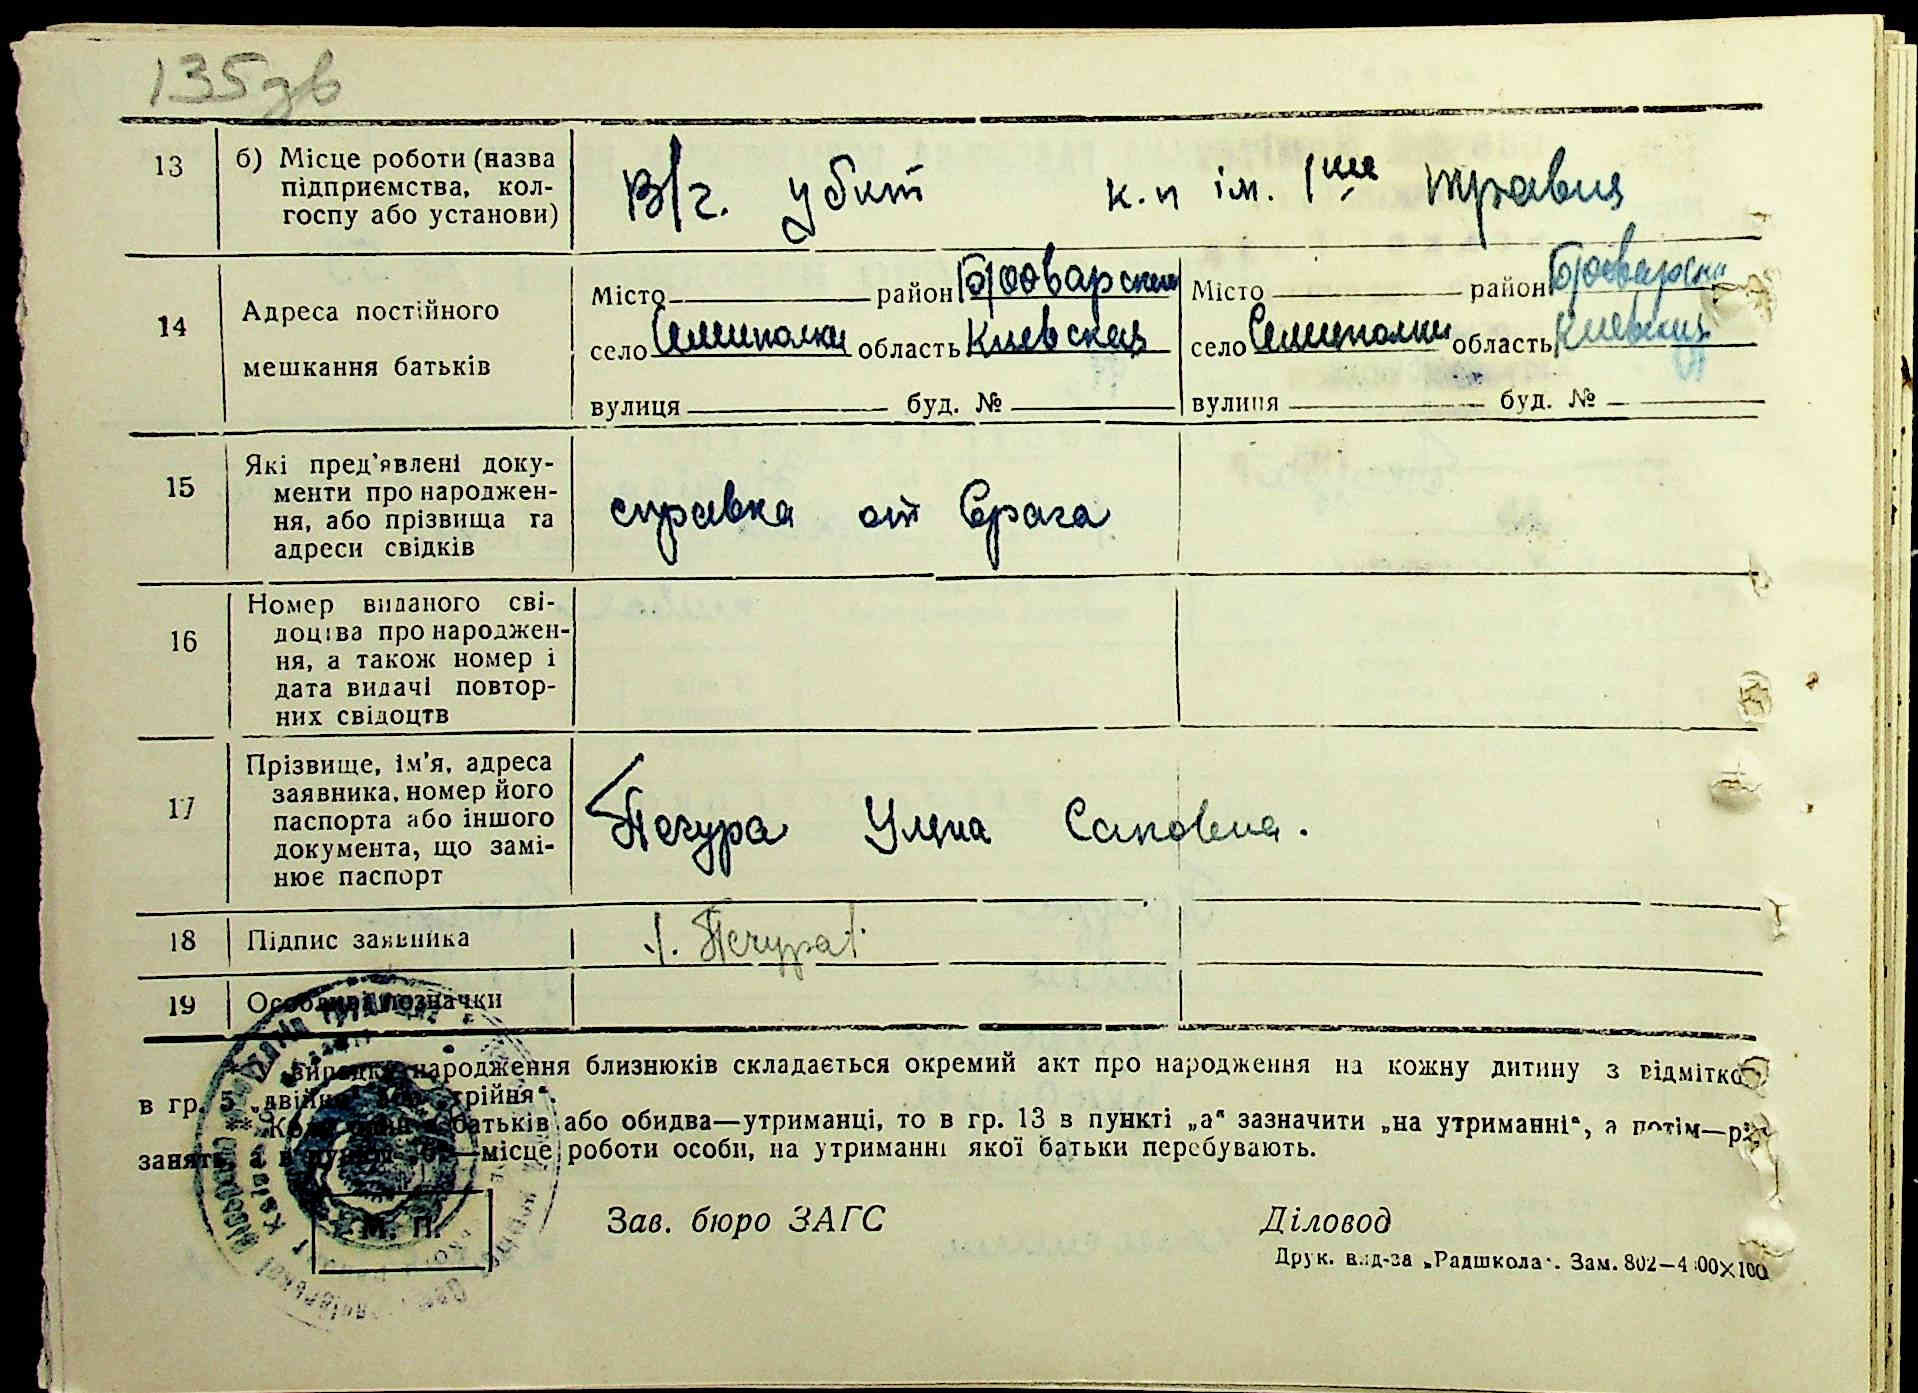 135зв
13 б) Місце роботи (назва
підприємства, кол-
госпу або установи)
В/г. убит к.п ім. 1ше травня
14 Адреса постійного
мешкання батьків
Місто район Броварский
село Семиполки область Киевская
вулиця буд. №
Місто район Броварски
село Семиполки область Киевская
вулиця буд. №
15 Які пред'явлені доку-
менти про народжен-
ня, або прізвища та
адреси свідків
справка от Врага
16 Номер виданого сві-
доцтва про народжен-
ня, а також номер і
дата видачі повтор-
них свідоцтв
17 Прізвище, ім'я, адреса
заявника, номер його
паспорта або іншого
документа, що замі-
нює паспорт
Печура Улена Саковна.
18 Підпис заявника
/. Печура/.
19 Особливі позначки
випадку народження близнюків складається окремий акт про народження на кожну дитину з відмітко
в гр. 5 „двійня“ або „трійня“.
Коли один з батьків або обидва—утриманці, то в гр. 13 в пункті „а“ зазначити „на утриманні“, а потім—р
занять, а в пункті „б“—місце роботи особи, на утриманні якої батьки перебувають.
М. П.
Зав. бюро ЗАГС
Діловод
Друк. вид-ва „Радшкола“. Зам. 802—4 00×100